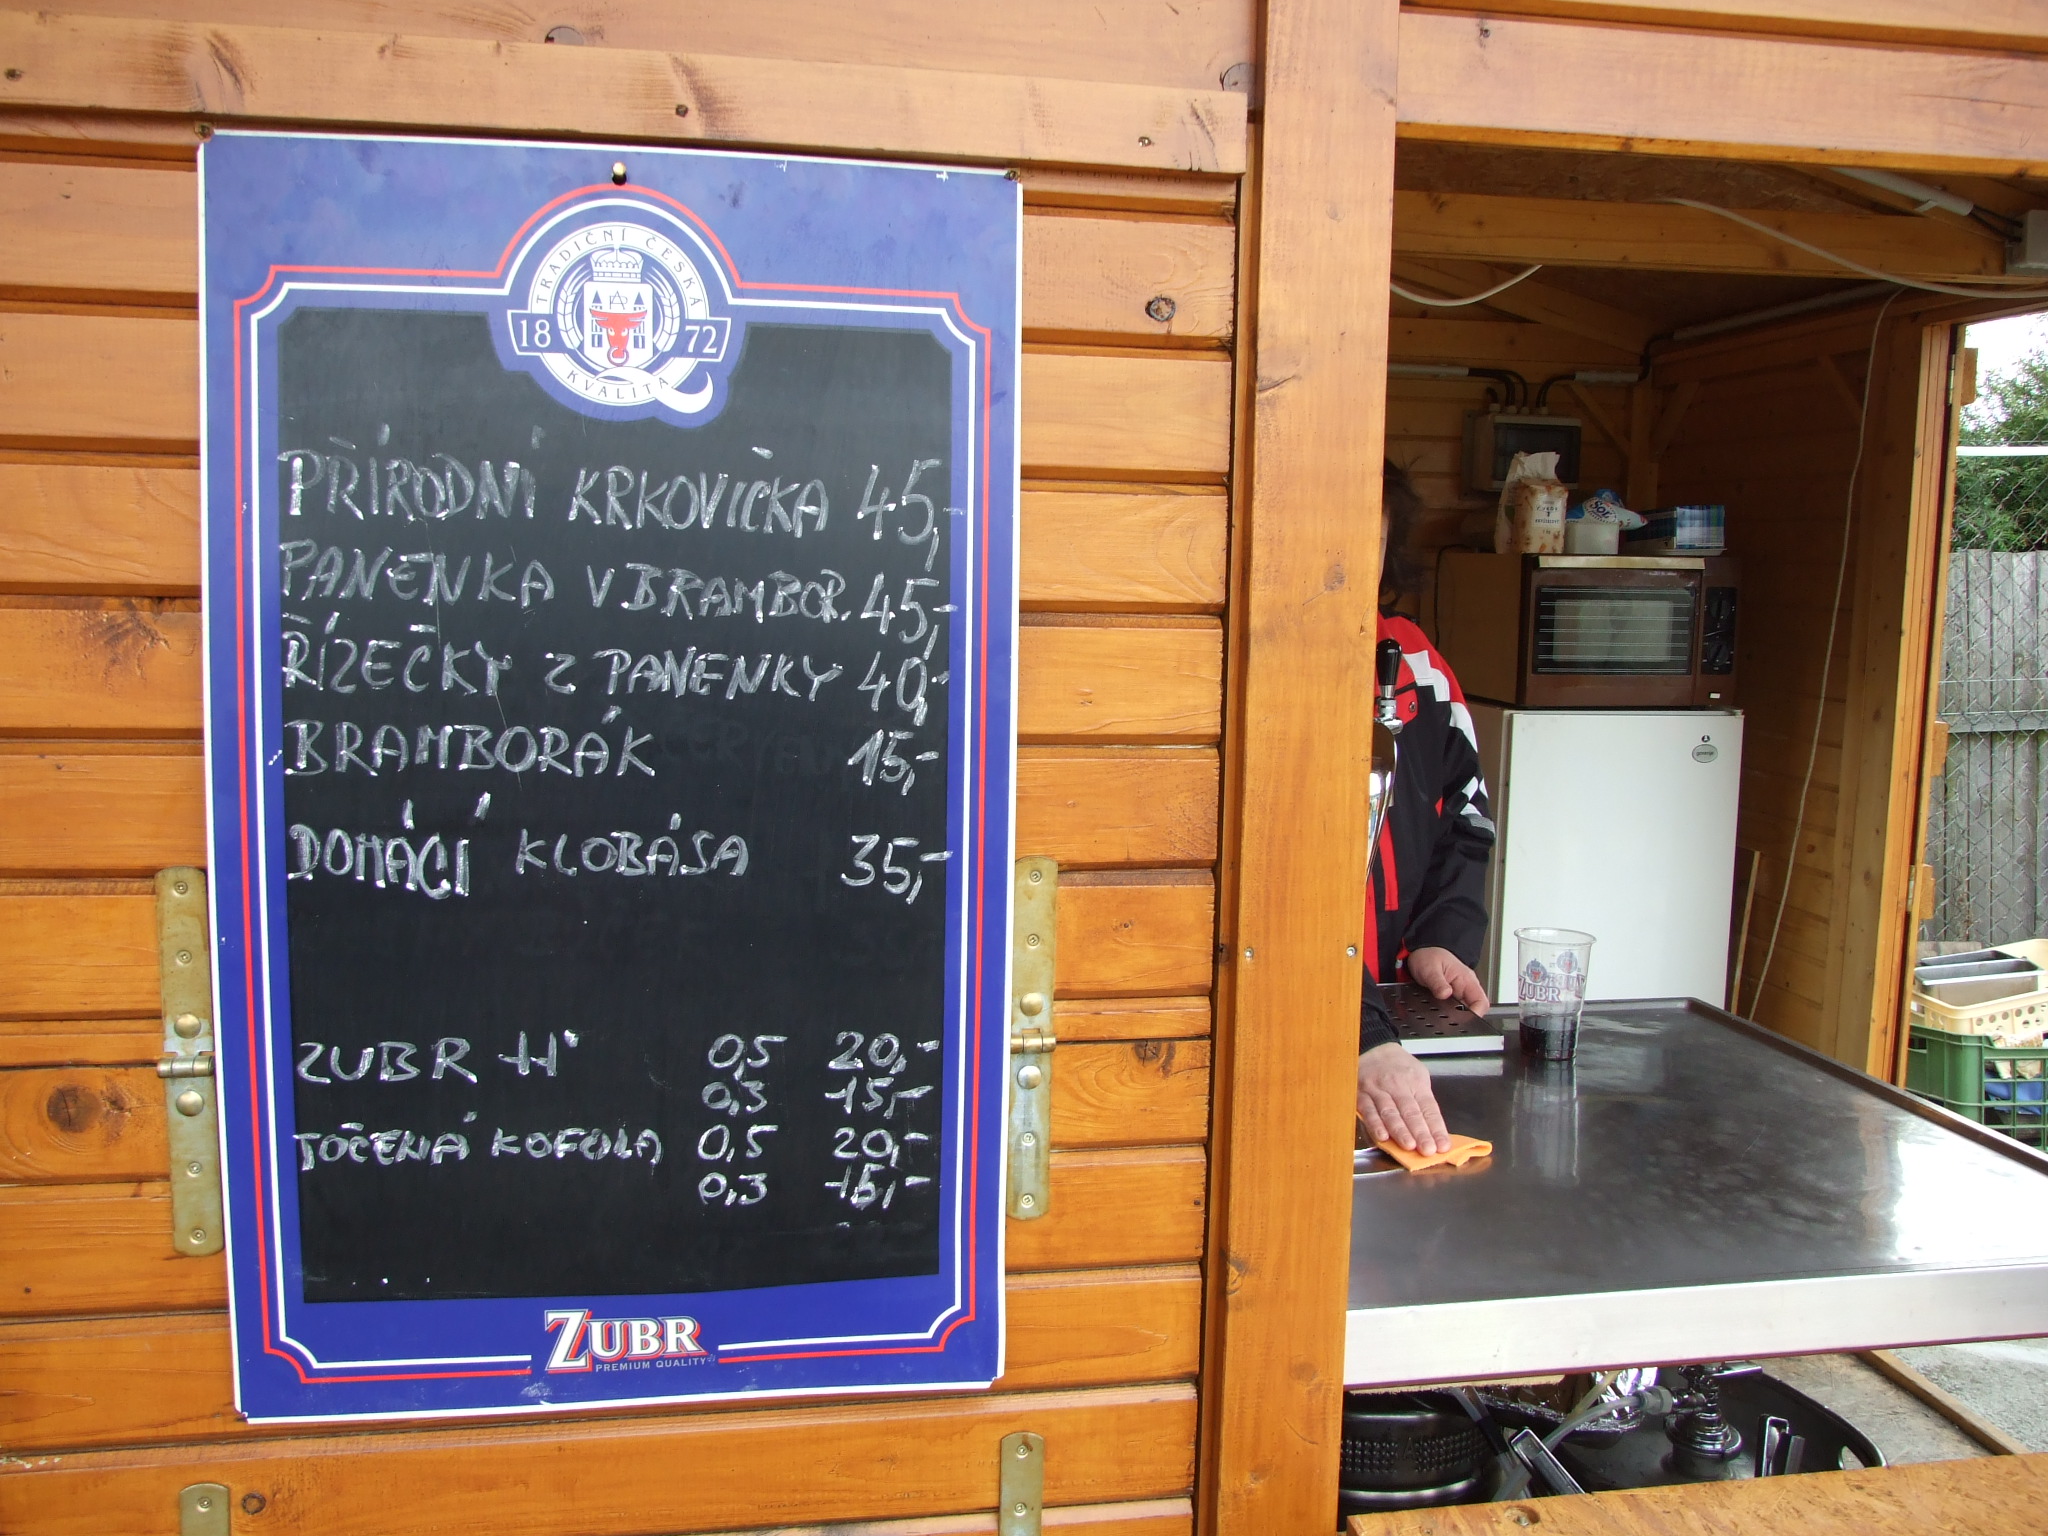 TRADIČNÍ ČESKÁ
18 72
KVALITA
PŘÍRODNÍ KRKOVIČKA 45,-
PANENKA V BRAMBOR. 45,-
ŘÍZEČKY Z PANENKY 40,-
BRAMBORÁK 15,-
DOMÁCÍ KLOBÁSA 35,-
ZUBR 11° 0,5 20,-
0,3 15,-
TOČENÁ KOFOLA 0,5 20,-
0,3 15,-
ZUBR
PREMIUM QUALITY
ZUBR
gorenje